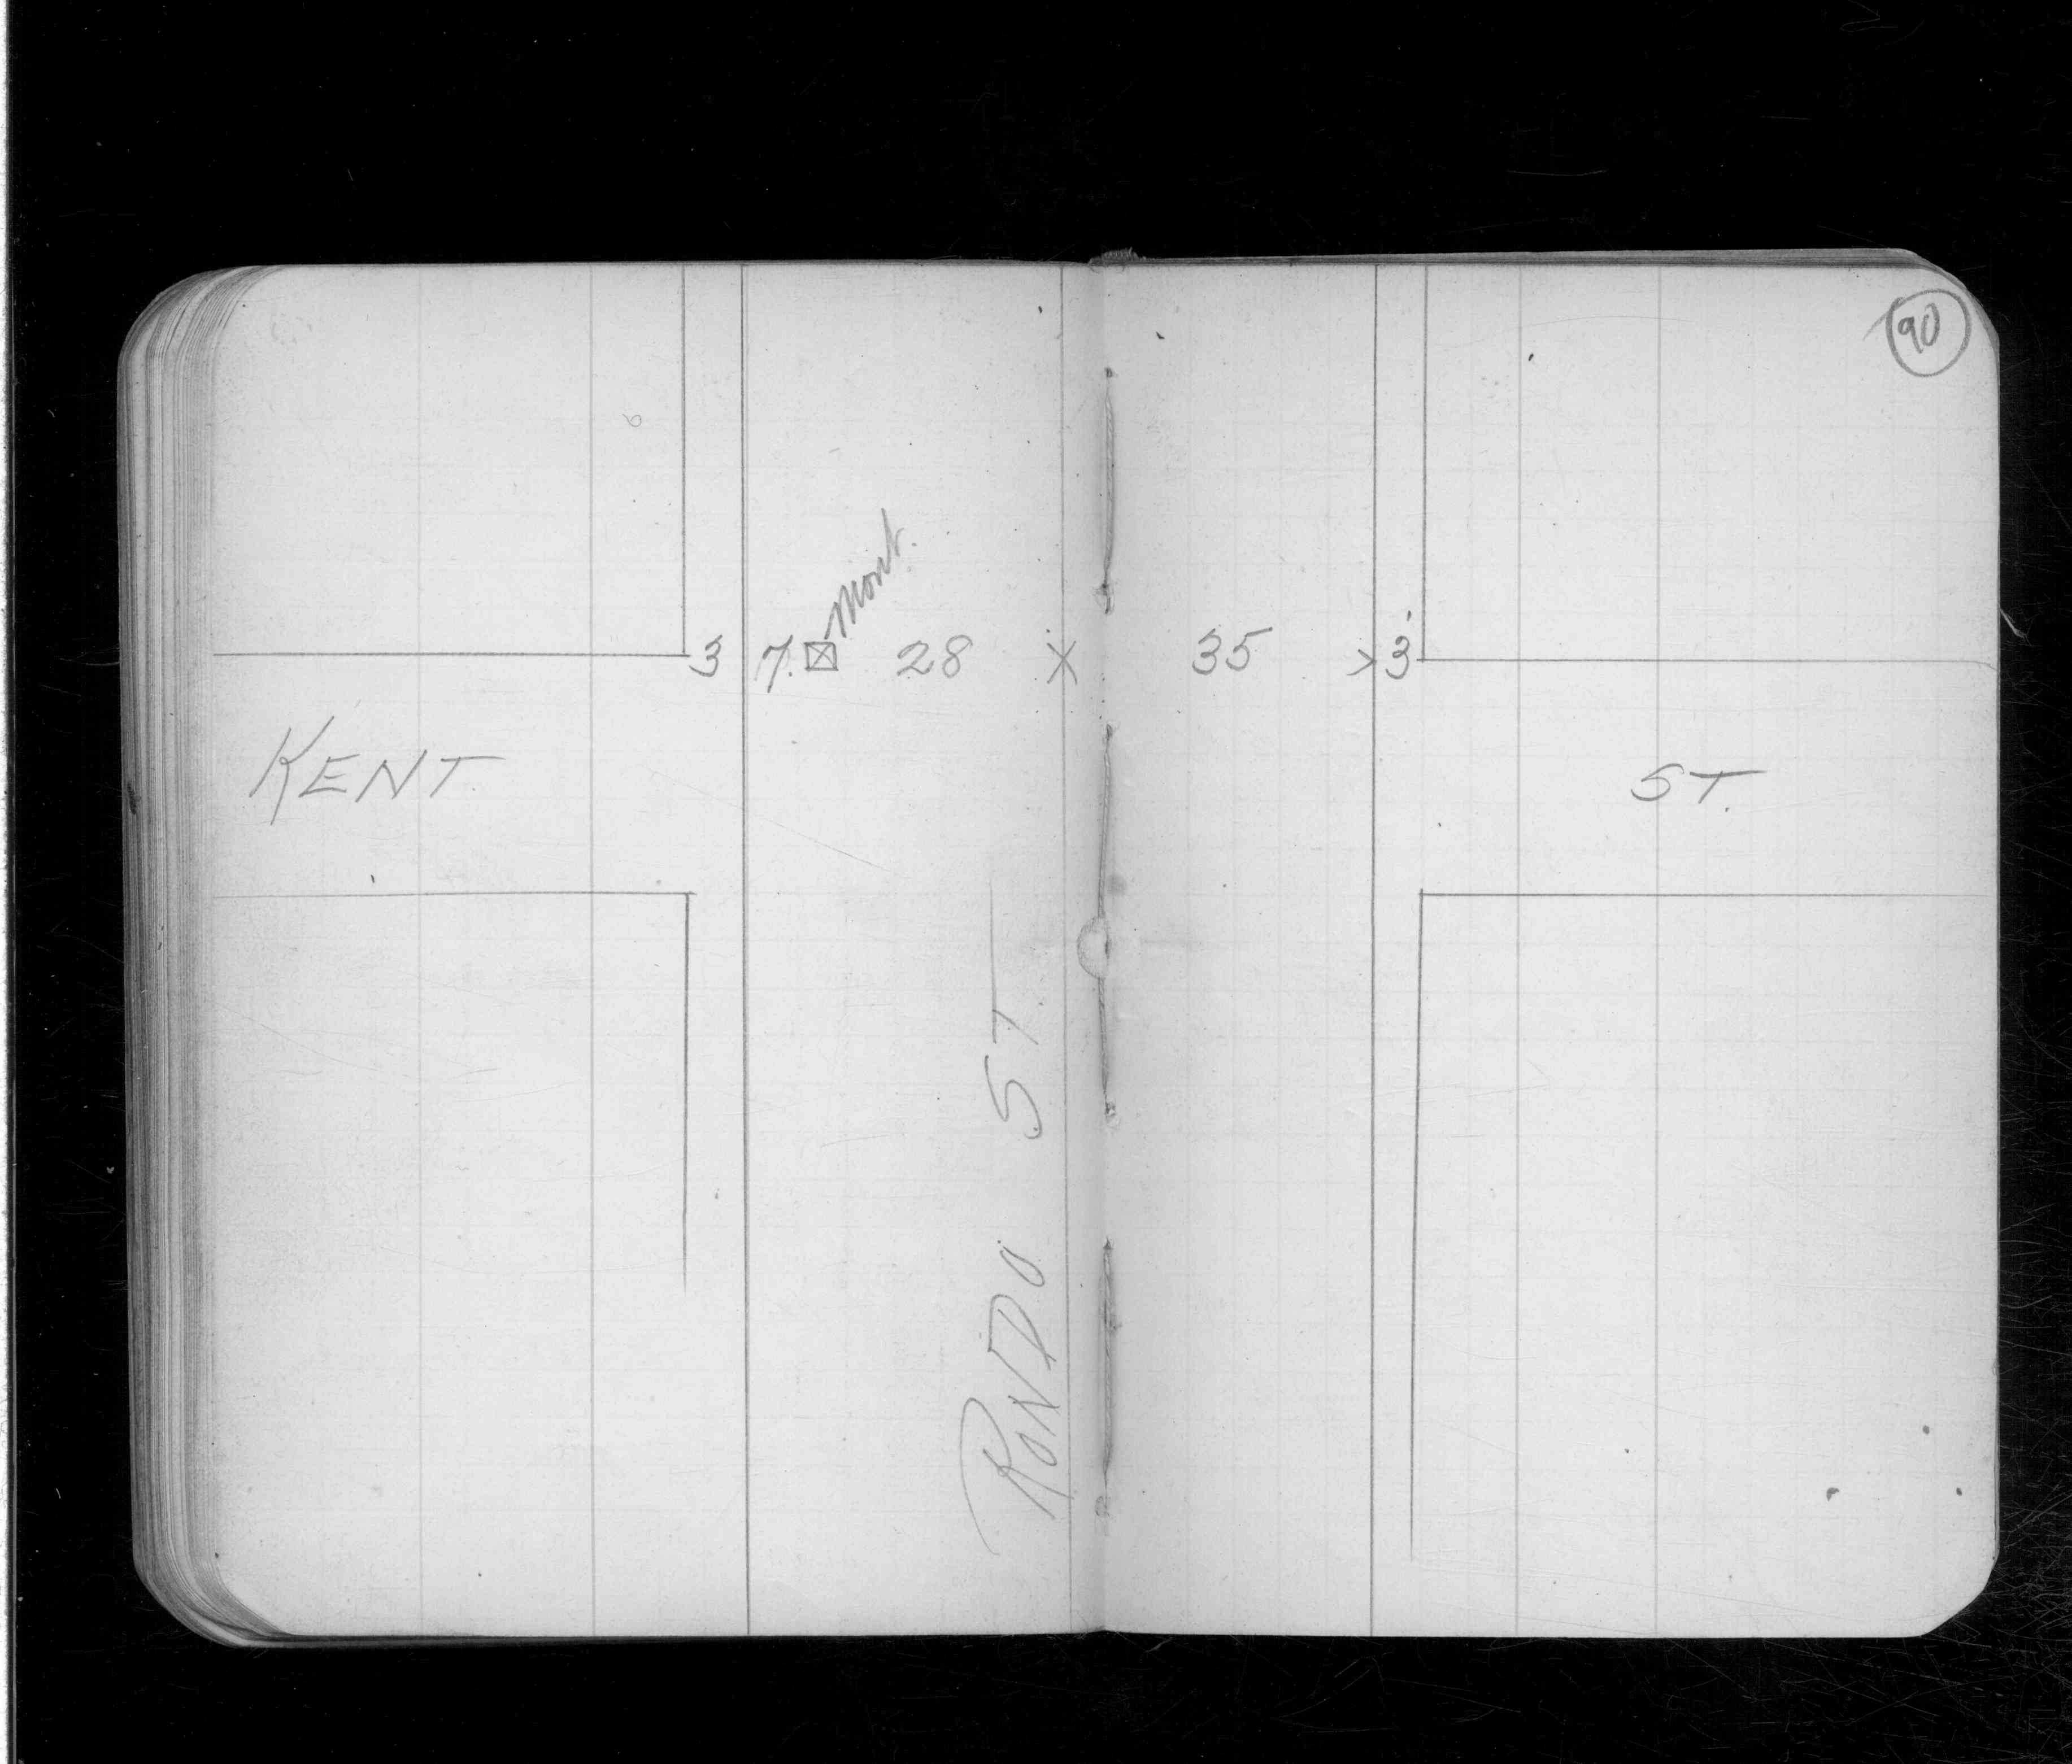 90
Mont.
3 7. 28 35 3'
KENT ST.
RONDO ST.